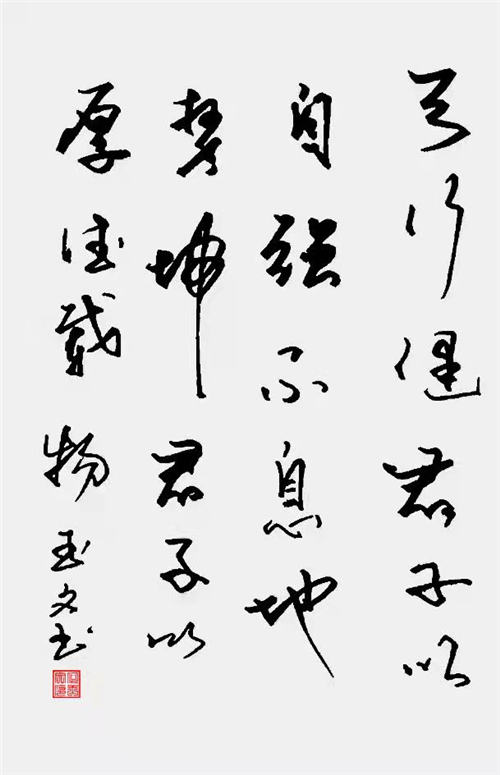 天行健君子以
自强不息地
势坤君子以
厚德载物 玉文书